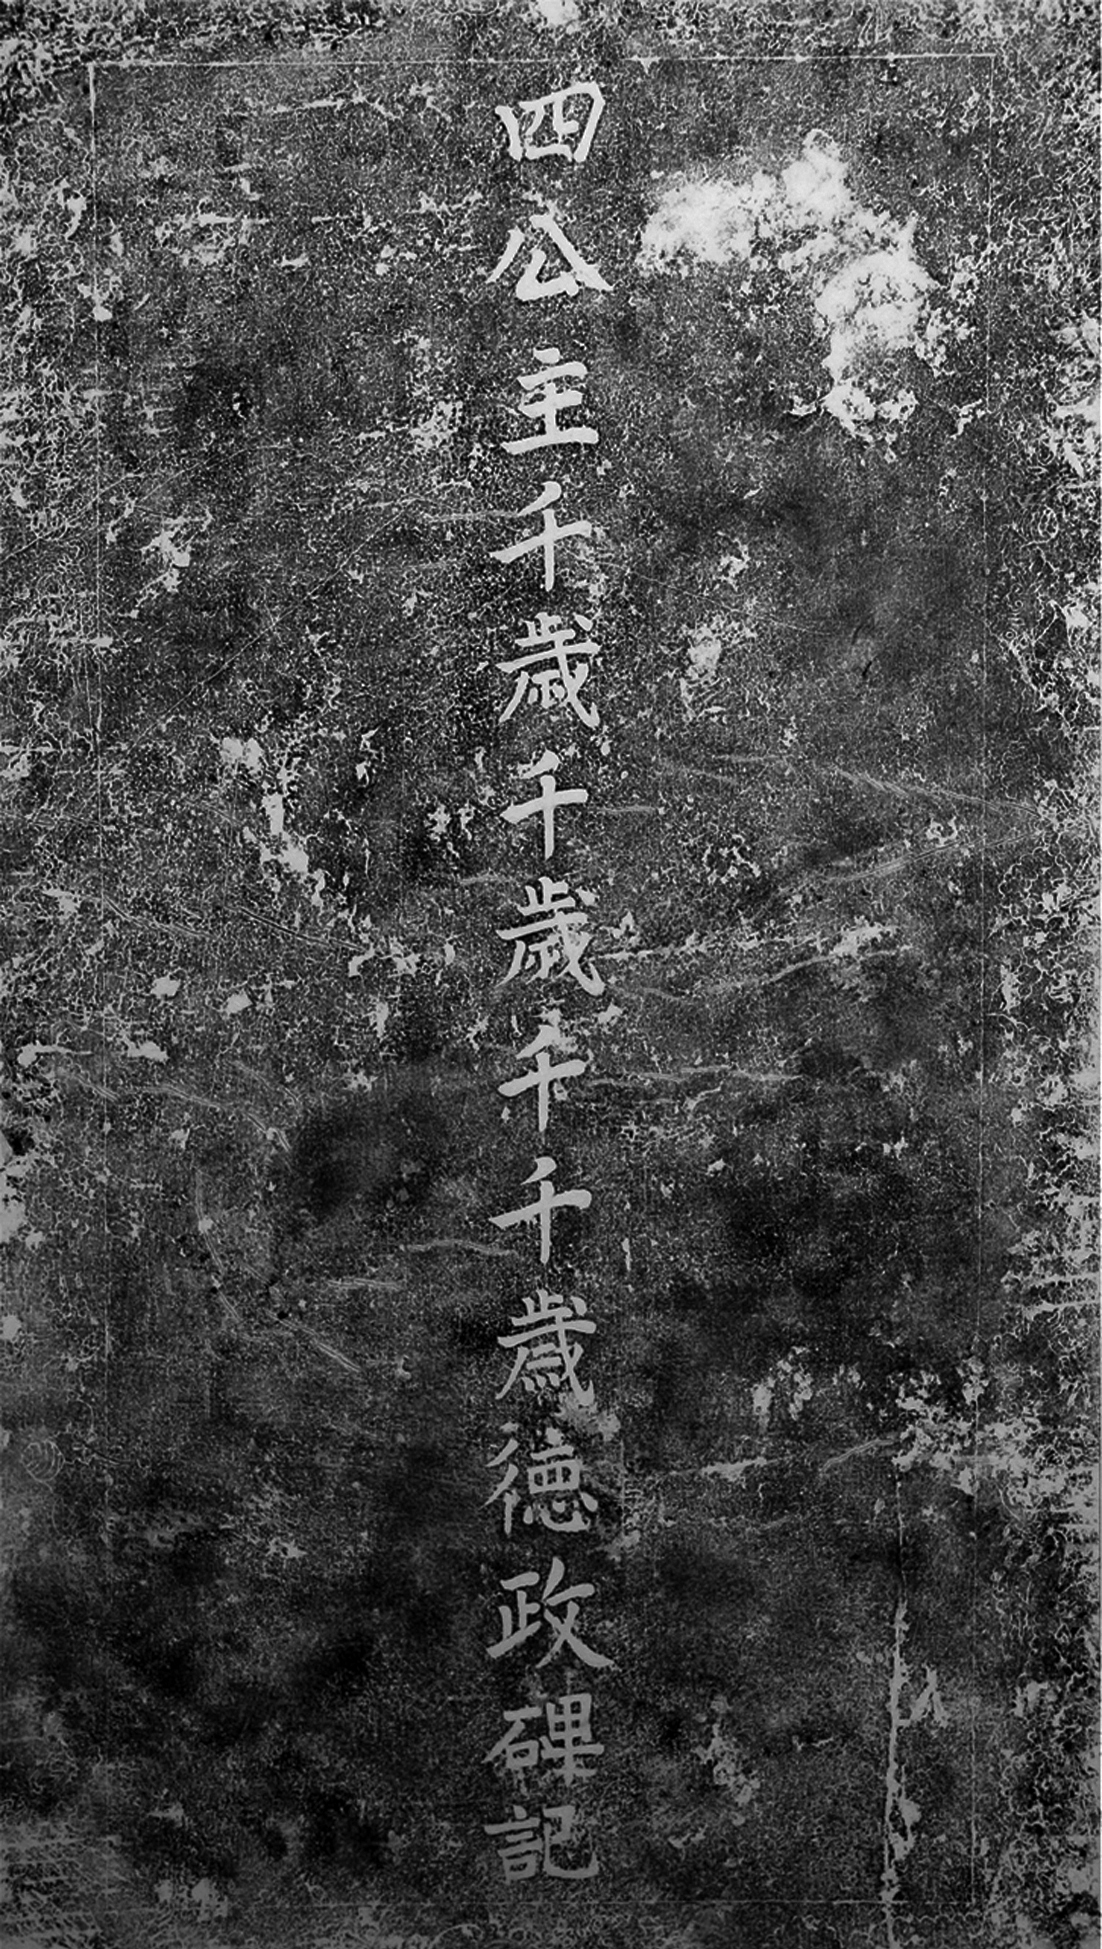 四公主千歲千歲千千歲德政碑記